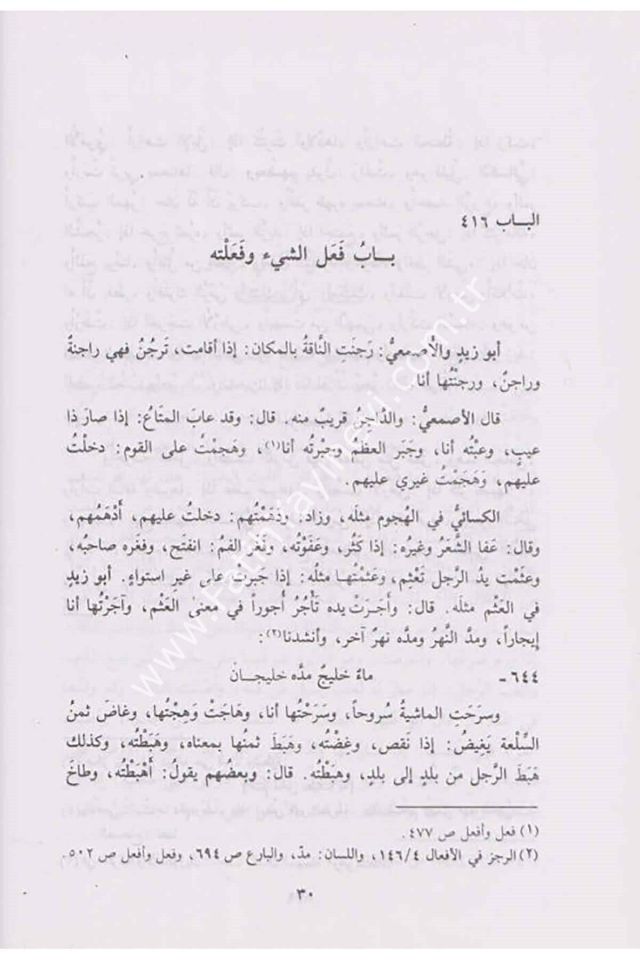 البــاب ٤١٦
بــابُ فَعَل الشيء وفَعَلْته
أبو زيدٍ والأصمعيُّ: رَجَنَتِ النَّاقةُ بالمكان: إذا أقامت، تَرجُنُ فهي راجنةٌ
وراجنٌ، ورجنْتُها أنا.
قال الأصمعيُّ: والدَّاجنُ قريبٌ منه. قال: وقد عابَ المتَاعُ: إذا صارَ ذا
عيبٍ، وعبْتُه أنا، وجَبَر العظمُ وجبْرتُه أنا(١)، وهَجمْتُ على القوم: دخلْتُ
عليهم، وَهَجَمْتُ غيري عليهم.
الكسائيُّ في الهُجوم مثلَه، وزاد: ودَهَمْتُهم: دخلت عليهم، أَدْهَمُهم،
وقال: عَفا الشَّعَرُ وغيرُه: إذا كَثُر، وعَفَوْتُه، وفَغَر الفمُ: انفتَح، وفغَره صاحبُه،
وعثَمْت يدُ الرَّجل تَعْثِم، وعَثمْتُهــا مثلُه: إذا جَبرت على غيرِ استواءٍ. أبو زيدٍ
في العَثْم مثلَه. قال: وأَجَرَتْ يده تأْجُرُ أُجوراً في معنى العَثْم، وآجَرْتُها أنا
إيجاراً، ومدَّ النَّهرُ ومدَّه نهرٌ آخر، وأنشدنا(٢):
٦٤٤ـ ماءُ خليجٍ مدَّه خليجــانَ
وسرَحَتِ الماشيةُ سُروحاً، وسَرَحْتُها أنا، وهاجَتْ وَهِجْتُها، وغاضَ ثمنُ
السِّلْعة يَغِيضُ: إذا نَقص، وغضْتُه، وهَبَطَ ثمنُها بمعناه، وهَبَطْتُه، وكذلك
هَبَطَ الرَّجل من بلدٍ إلى بلدٍ، وهبَطْتُه. قال: وبعضُهم يقولُ: أَهْبَطْتُه، وطاخَ
(١) فعل وأفعل ص ٤٧٧.
(٢) الرجز في الأفعال ١٤٦/٤، واللسان: مدّ، والبارع ص ٦٩٤، وفعل وأفعل ص ٥٠٢.
٣٠
www.Fatihyayinevi.com.tr